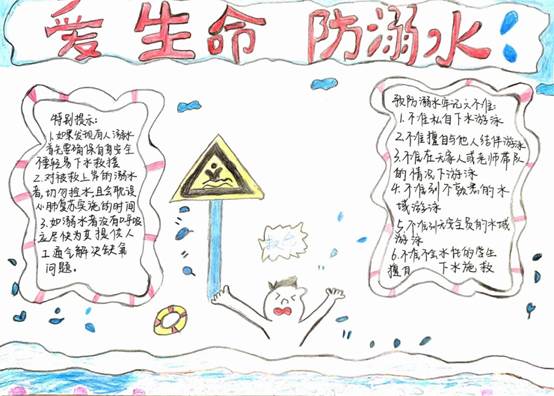 爱生命 防溺水
特别提示:
1.如果发现有人溺水
首先要确保自身安全
懂轻易下水救援
2.对被救上岸的溺水
者,切勿控水,且会耽误
心肺复苏实施的时间
3.如溺水者没有呼吸
立尽快为其提供人
工通气解决缺氧
问题。
救命
预防溺水牢记六不准:
1.不准私自下水游泳
2.不准擅自与他人结伴游泳
3.不准在无家人或老师带队
的情况下游泳
4.不准到不熟悉的水
域游泳
5.不准到无安全员的水域
游泳
6.不准不会水性的学生
擅自下水施救